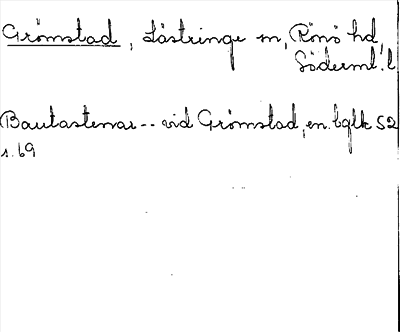 Grømstad, Lästringe sn, Rönö hd,
Söderml. l
Bautastenar -- vid Grømstad, en. bglk S2
s. 69